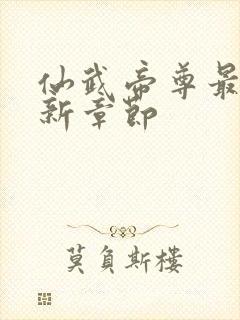 仙武帝尊最
新章节
莫負斯樓